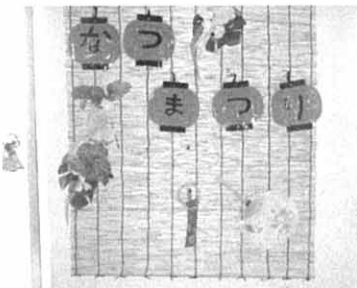 なつ
まつり